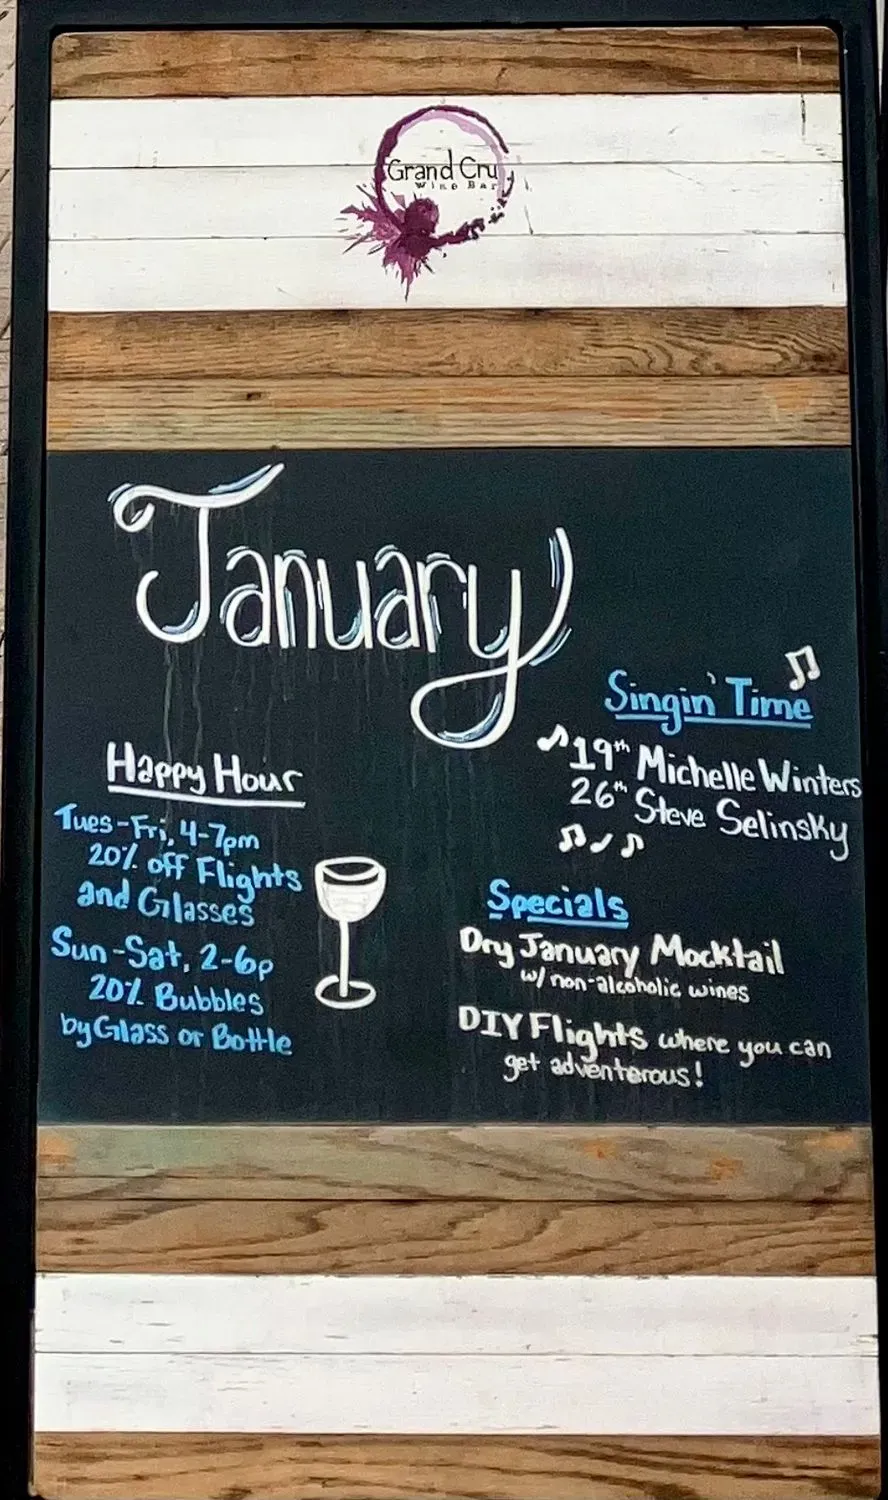 Grand Cru
Wine Bar
January
Happy Hour
Tues-Fri, 4-7pm
20% off Flights
and Glasses
Sun-Sat, 2-6p
20% Bubbles
by Glass or Bottle
Singin' Time
19th Michelle Winters
26th Steve Selinsky
Specials
Dry January Mocktail
w/ non-alcoholic wines
DIY Flights where you can
get adventerous!